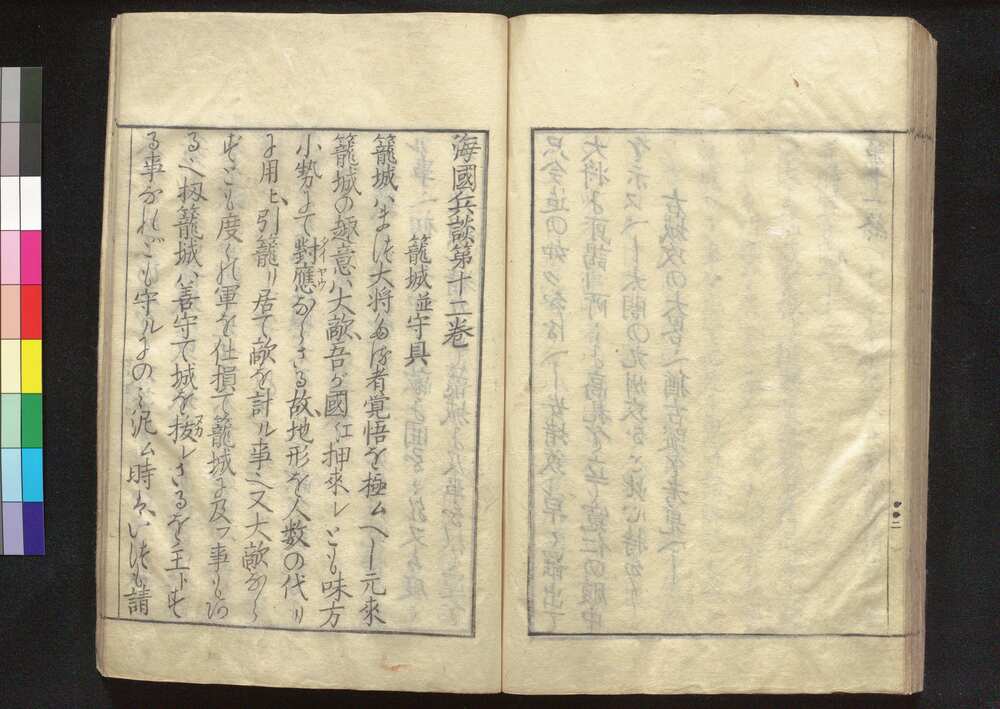 海國兵談第十二巻
籠城並守具
籠城ハまつ大将たる者覚悟を極ムへし元来
籠城の趣意ハ大敵吾が國江押来レとも味方
小勢にて對應ならさる故地形を人数の代リ
に用ヒ引籠リ居て敵を計ル事也又大敵なら
すとも度々れ軍を仕損て籠城に及フ事もあ
る也扨籠城ハ善守て城を抜レさるを主トす
る事なれども守ルにのミ泥ム時ハいつも請